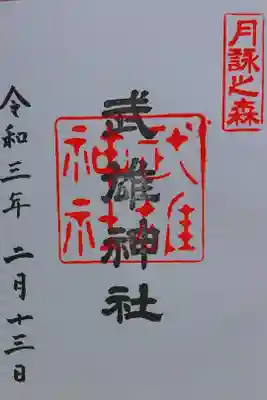 月詠之森
武雄神社
武雄
神社
令和三年 二月十三日